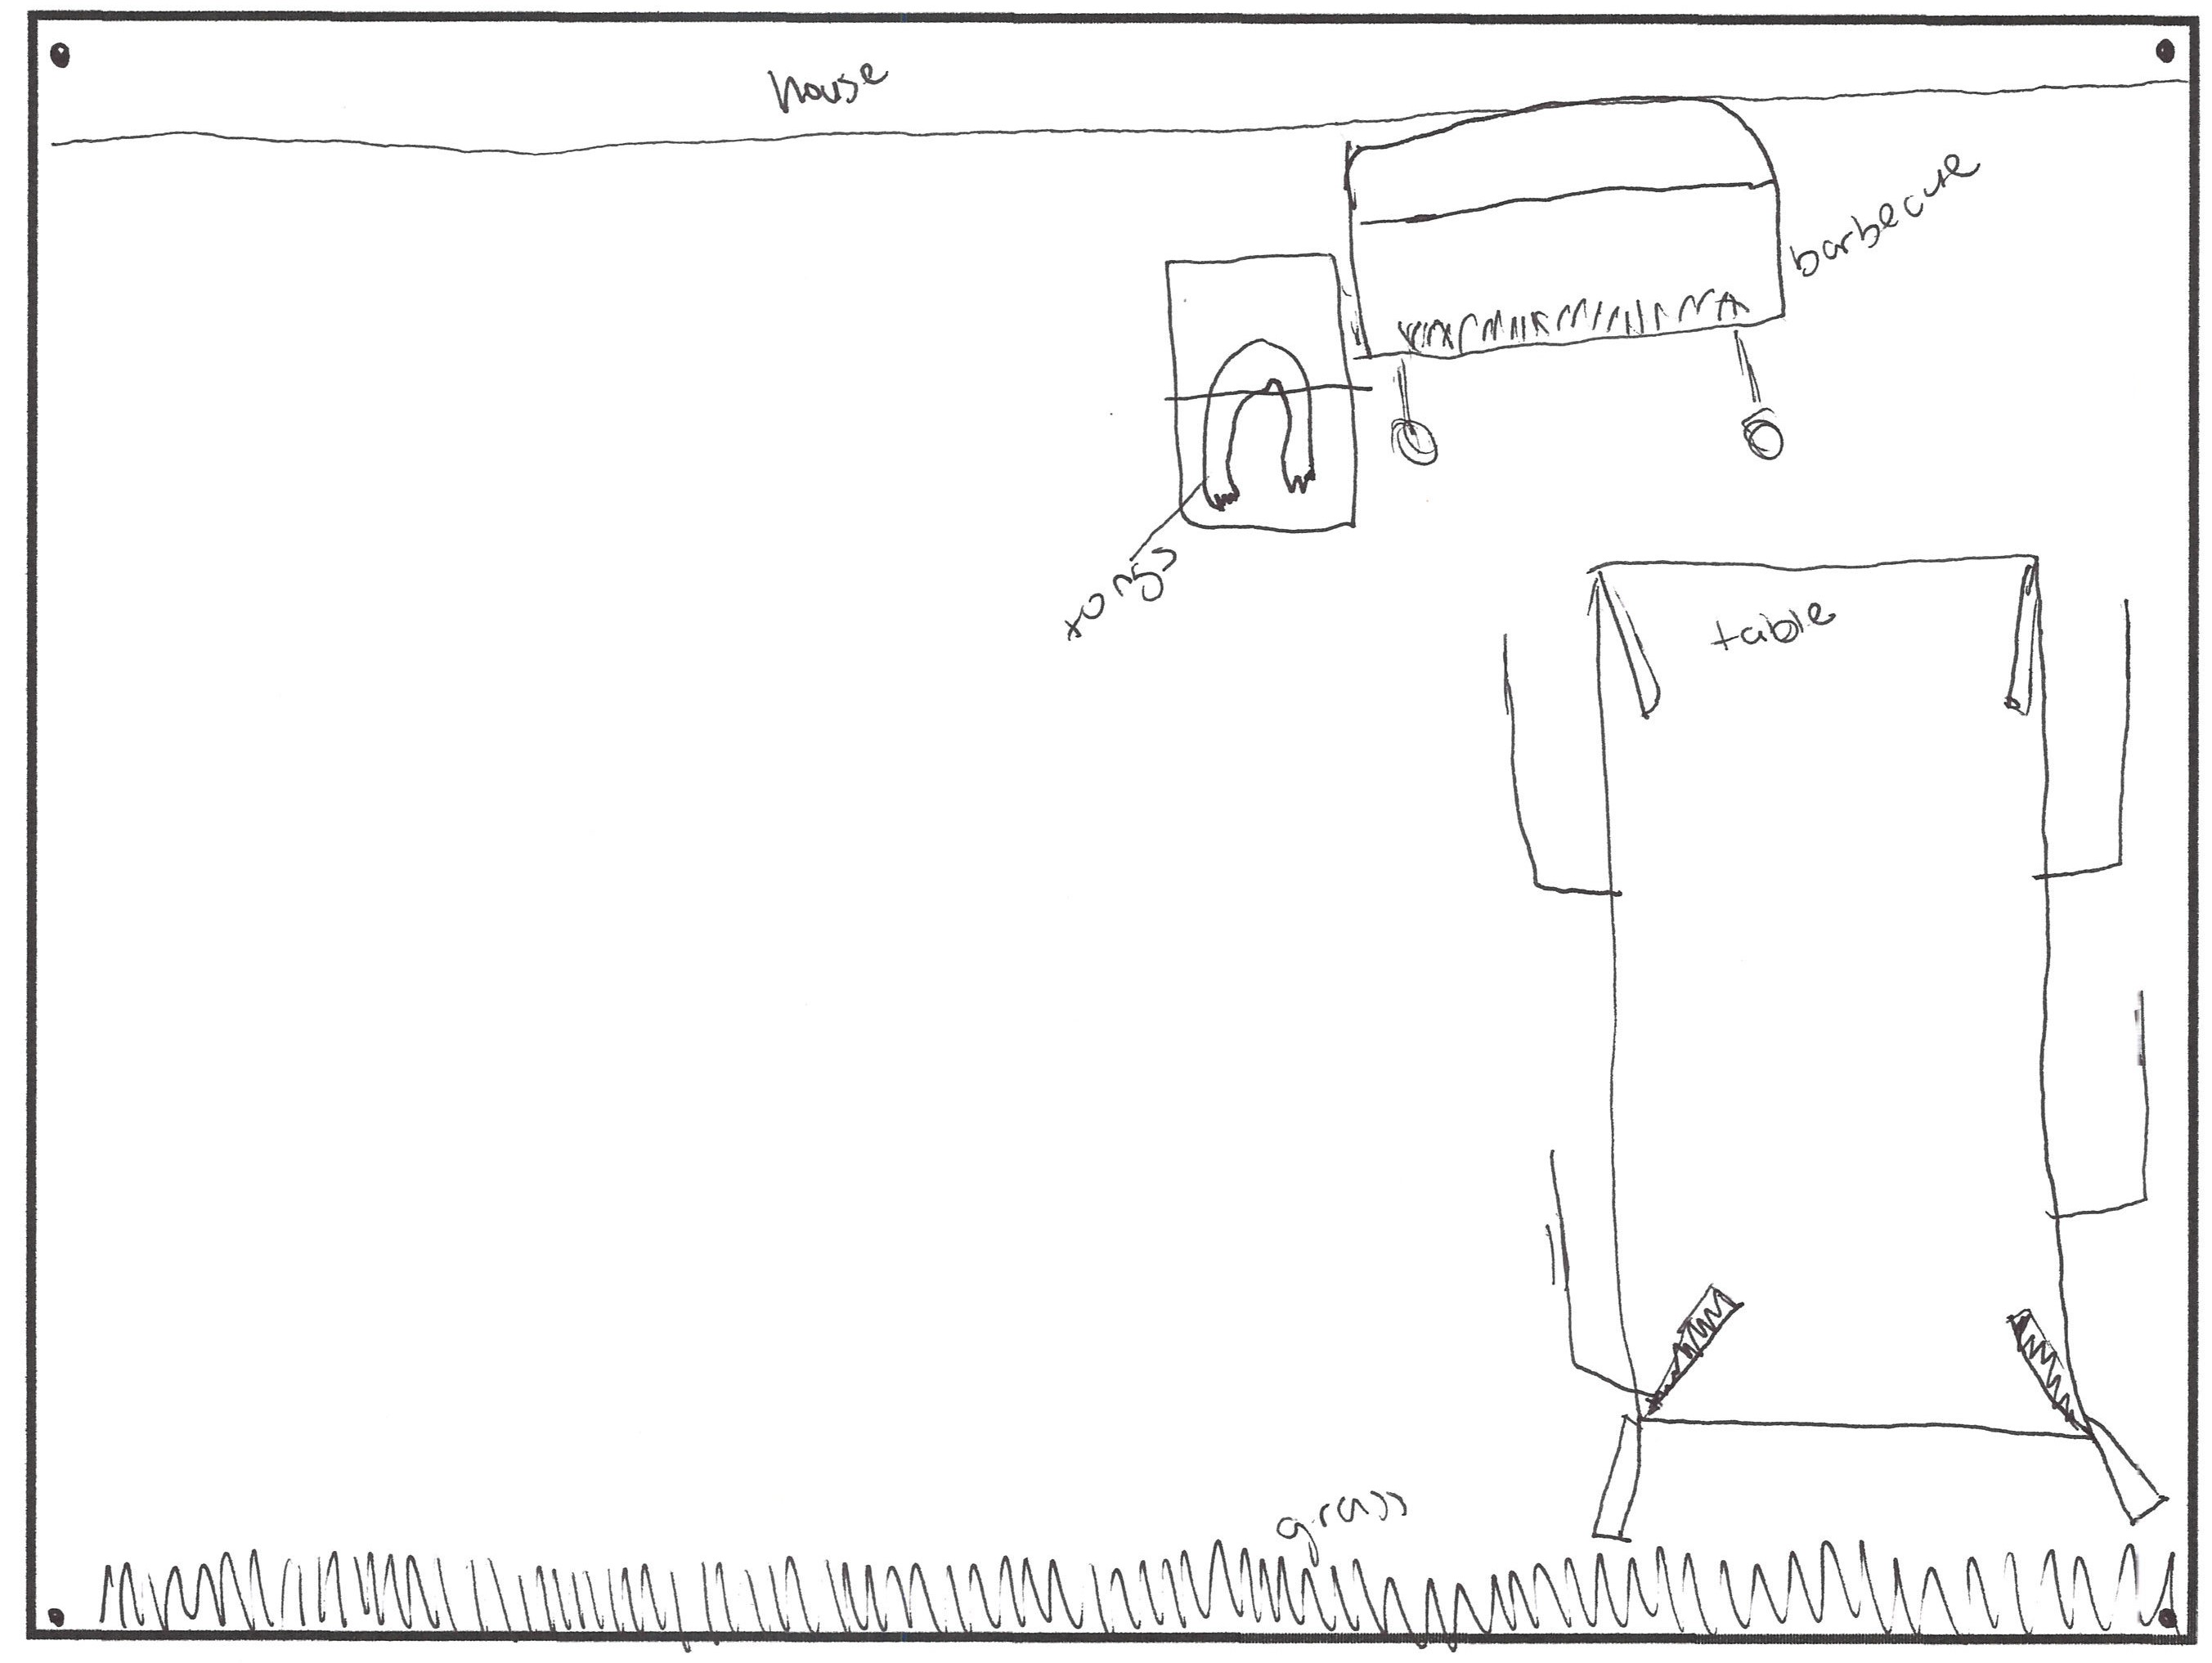 house
barbecue
tongs
table
grass